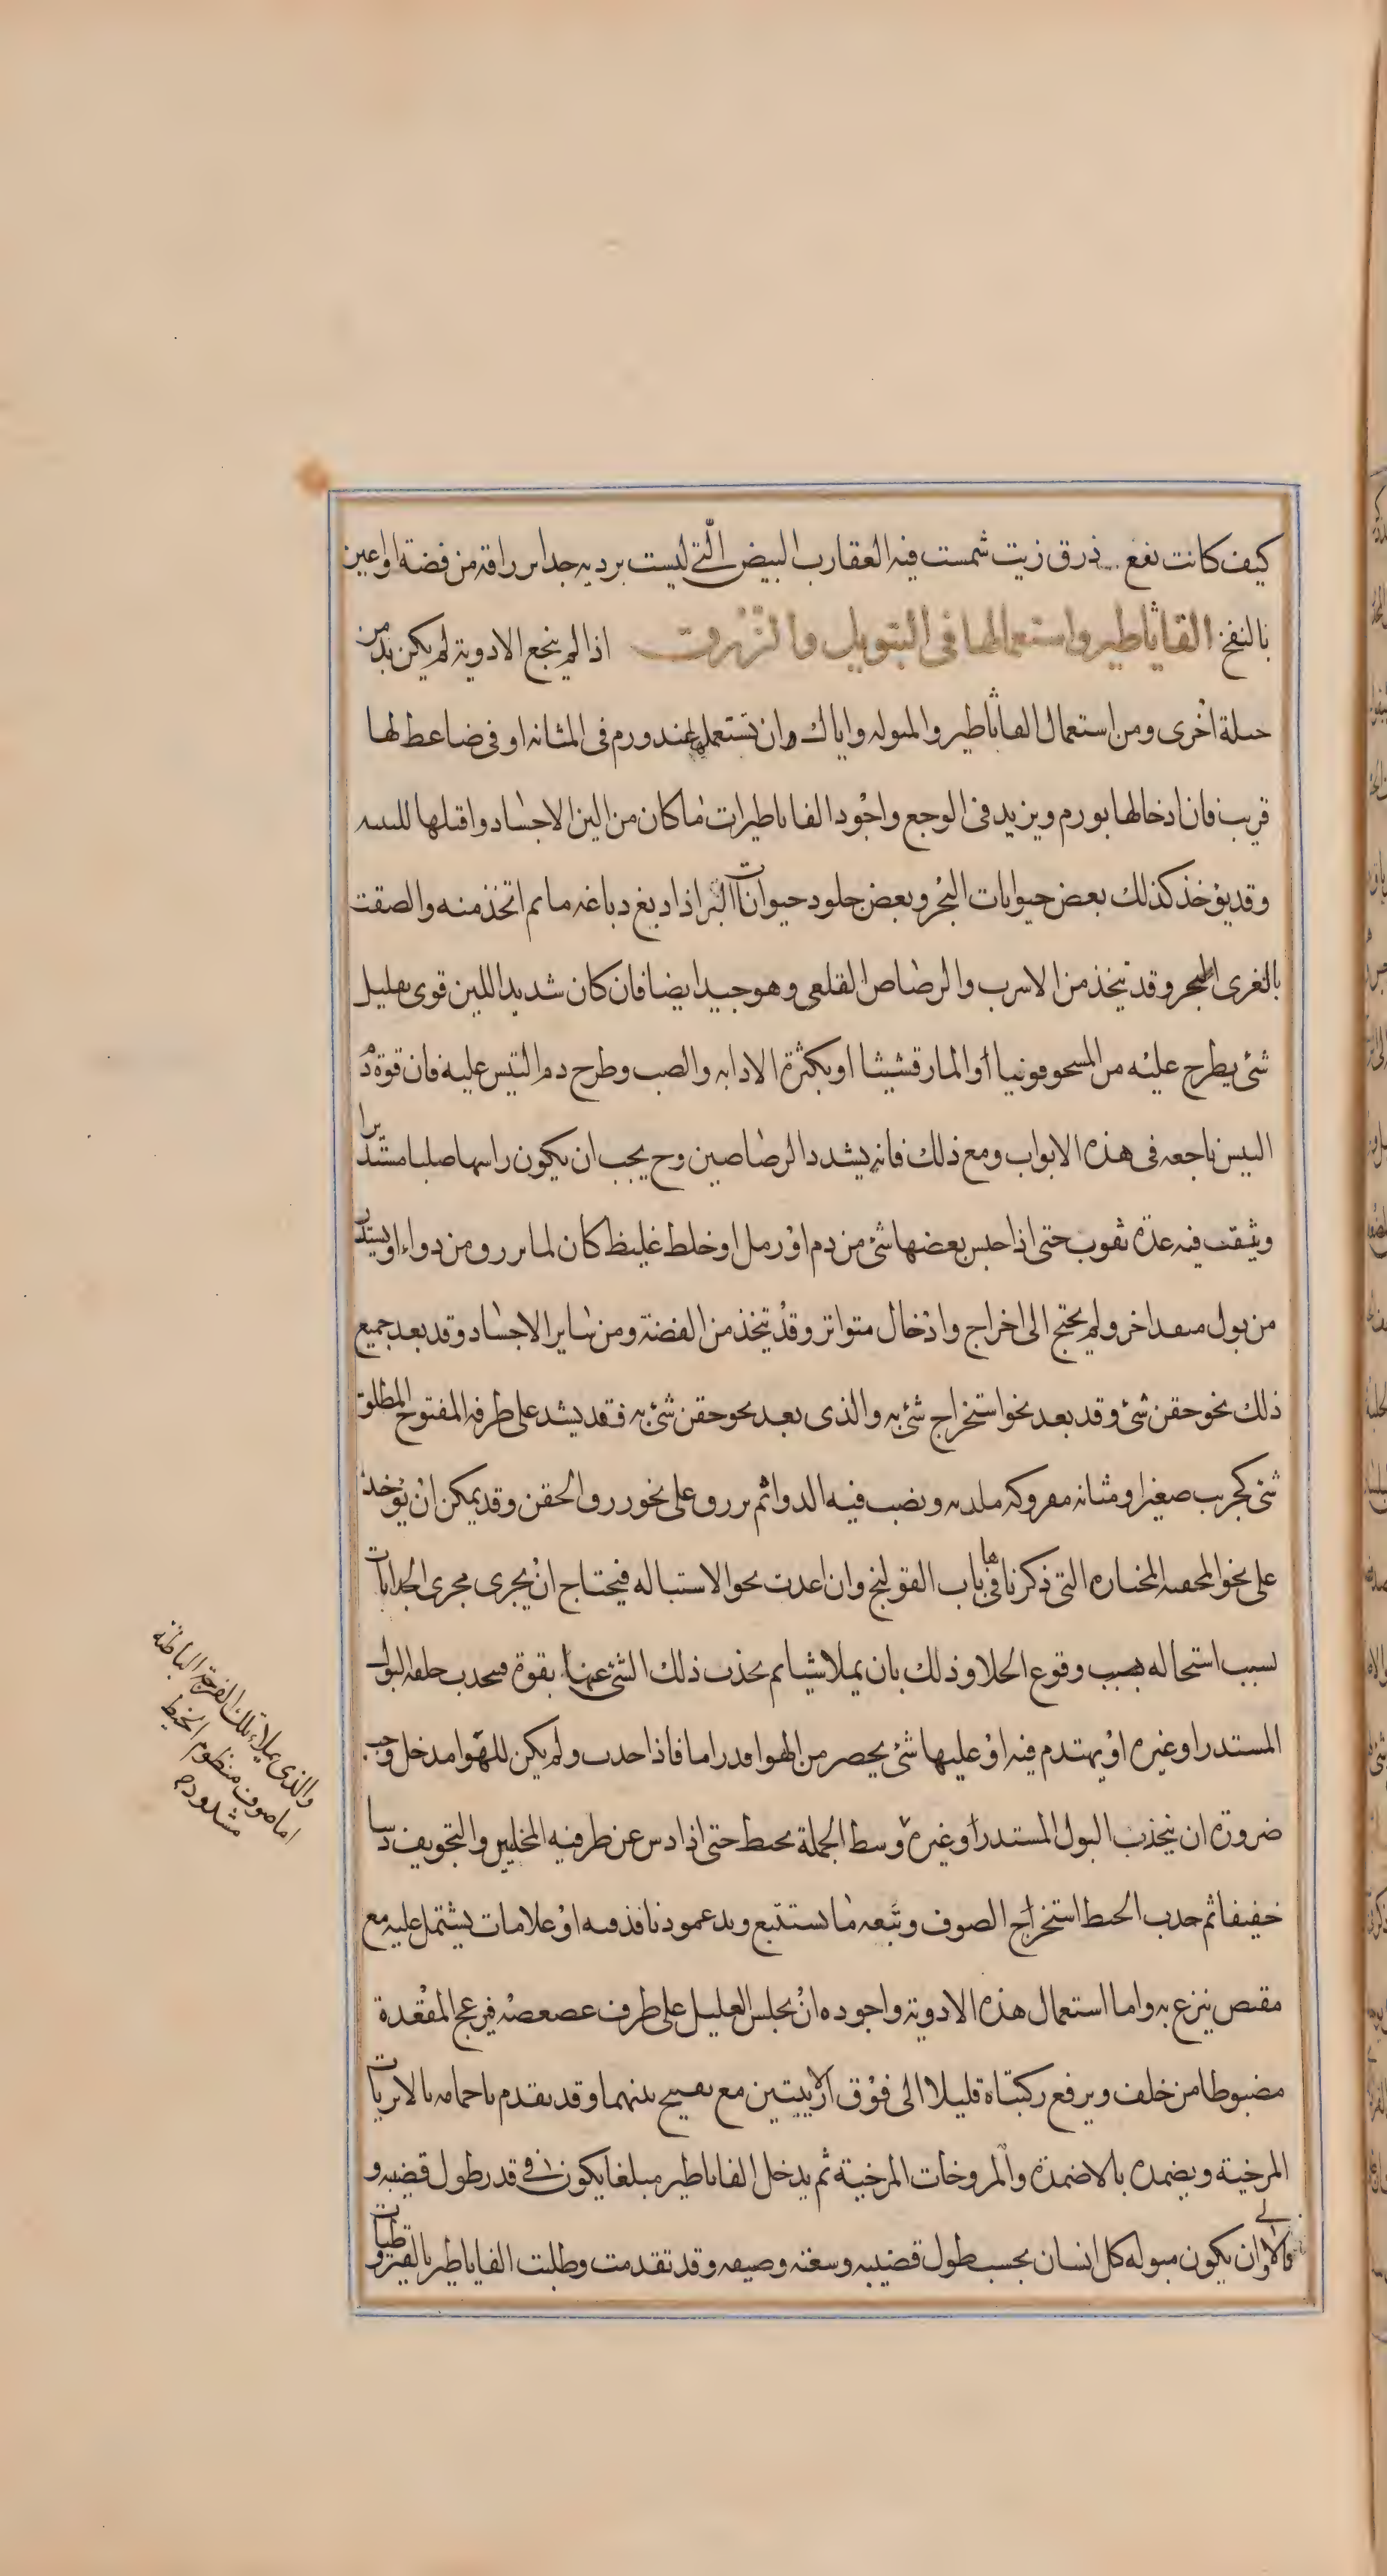 كيف كانت نفع ذرق زيت شمست فيه العقارب البيض التي ليست بردية جدا بزراقة من فضة او اعين
بالنفخ القاثاطير واستعمالها في التبويل والزرق اذا لم ينجع الادوية لم يكن بد من
حيلة اخرى ومن استعمال القاثاطير والمبولة واياك وان تستعملها عند ورم في المثانة او في ضاغط لها
قريب فان ادخالها يورم ويزيد في الوجع واجود القاثاطيرات ما كان من الين الاجساد واقبلها للتثنية
وقد يوخذ كذلك بعض حيوانات البحر وبعض جلود حيوانات البر اذا دبغ دباغة ما ثم اتخذ منه والصقت
بالغرى الحجر وقد يتخذ من الاسرب والرصاص القلعي وهو جيد ايضا فان كان شديد اللين قوى بقليل
شئ يطرح عليه من المسحوقونيا او المارقشيشا او بكثرة الاذابة والصب وطرح دم التيس عليه فان قوة دم
التيس ناجعة في هذه الابواب ومع ذلك فانه يشدد الرصاصين وح يجب ان يكون راسها صلبا مستديرا
ويثقب فيه عدة ثقوب حتى اذا حبس بعضها شئ من دم او رمل او خلط غليظ كان لما يزرق من دواء او يستدر
من بول منفذ اخر ولم يحتج الى اخراج وادخال متواتر وقد يتخذ من الفضة ومن ساير الاجساد وقد يعد جميع
ذلك نحو حقن شئ وقد يعد نحو استخراج شئ به والذي يعد نحو حقن شئ به فقد يشد على طرفه المفتوح المطلق
شئ كجريب صغير او مثانة مفروكة ملدنة ويصب فيه الدوا ثم يزرق على نحو زرق الحقن وقد يمكن ان يوخذ
على نحو المحقنة المختارة التي ذكرناها في باب القولنج وان اعدت نحو الاستبالة فيحتاج ان يجرى مجرى الجدابات
بسبب استحالة بسبب وقوع الخلا وذلك بان يملا شيا ثم يجذب ذلك الشئ عنها بقوة فيجذب خلفه البول
المستدر او غيره او يهندم فيه او عليها شئ يحصر من الهوا قدرا ما فاذا جذب ولم يكن للهوا مدخل وجب
ضرورة ان ينجذب البول المستدر او غيره وسط الجملة بخيط حتى اذا دس عن طرفيه المخليين والتجويف دسا
خفيفا ثم جذب الخيط استخراج الصوف وتبعه ما يستتبع ويد عمود نافذ فيه او علامات يشتمل عليه مع
مقبص ينزع به واما استعمال هذه الادوية واجوده ان يجلس العليل على طرف عصعصه فيزعج المقعدة
مضبوطا من خلف ويرفع ركبتاه قليلا الى فوق الاربيتين مع تفحيج بينهما وقد يقدم باحمامه بالابزنات
المرخية ويضمده بالاضمدة والمروخات المرخية ثم يدخل القاثاطير مبلغا يكون في قدر طول قضيبه و
فالاولى ان يكون مبولة كل انسان بحسب طول قضيبه وسعته وضيقه وقد تقدمت وطليت القاثاطير بالقيروطيات و
والذي يملا تلك الفرجة الباطنة
اما صوف منظوم الخيط
مشدود ح